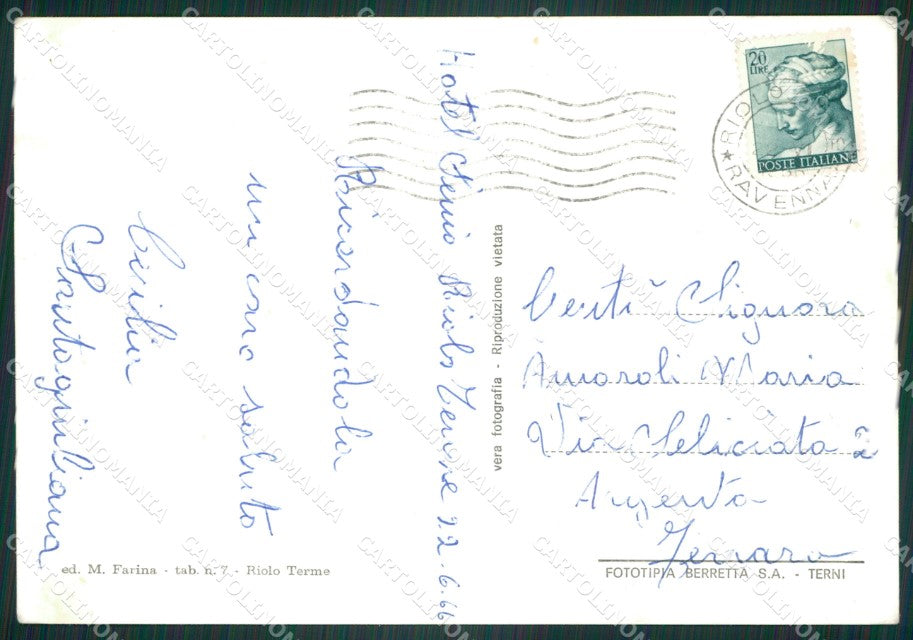 Hotel Senio Riolo Terme 22-6-66
Ricordandola
un caro saluto
Cecilia
20
LIRE
POSTE ITALIANE
RIOLO
RAVENNA
vera fotografia - Riproduzione vietata
Signora
Amaroli Maria
Via Seliciata 2
Argenta
Ferrara
ed. M. Farina - tab. n. 7 - Riolo Terme
FOTOTIPIA BERRETTA S.A. - TERNI
CARTOLINOMANIA